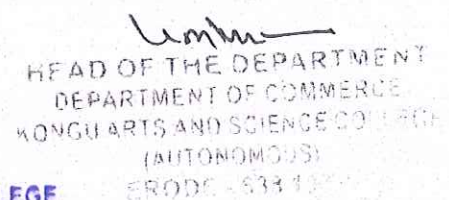 HEAD OF THE DEPARTMENT
DEPARTMENT OF COMMERCE
KONGU ARTS AND SCIENCE COLLEGE
(AUTONOMOUS)
ERODE - 638
EGE